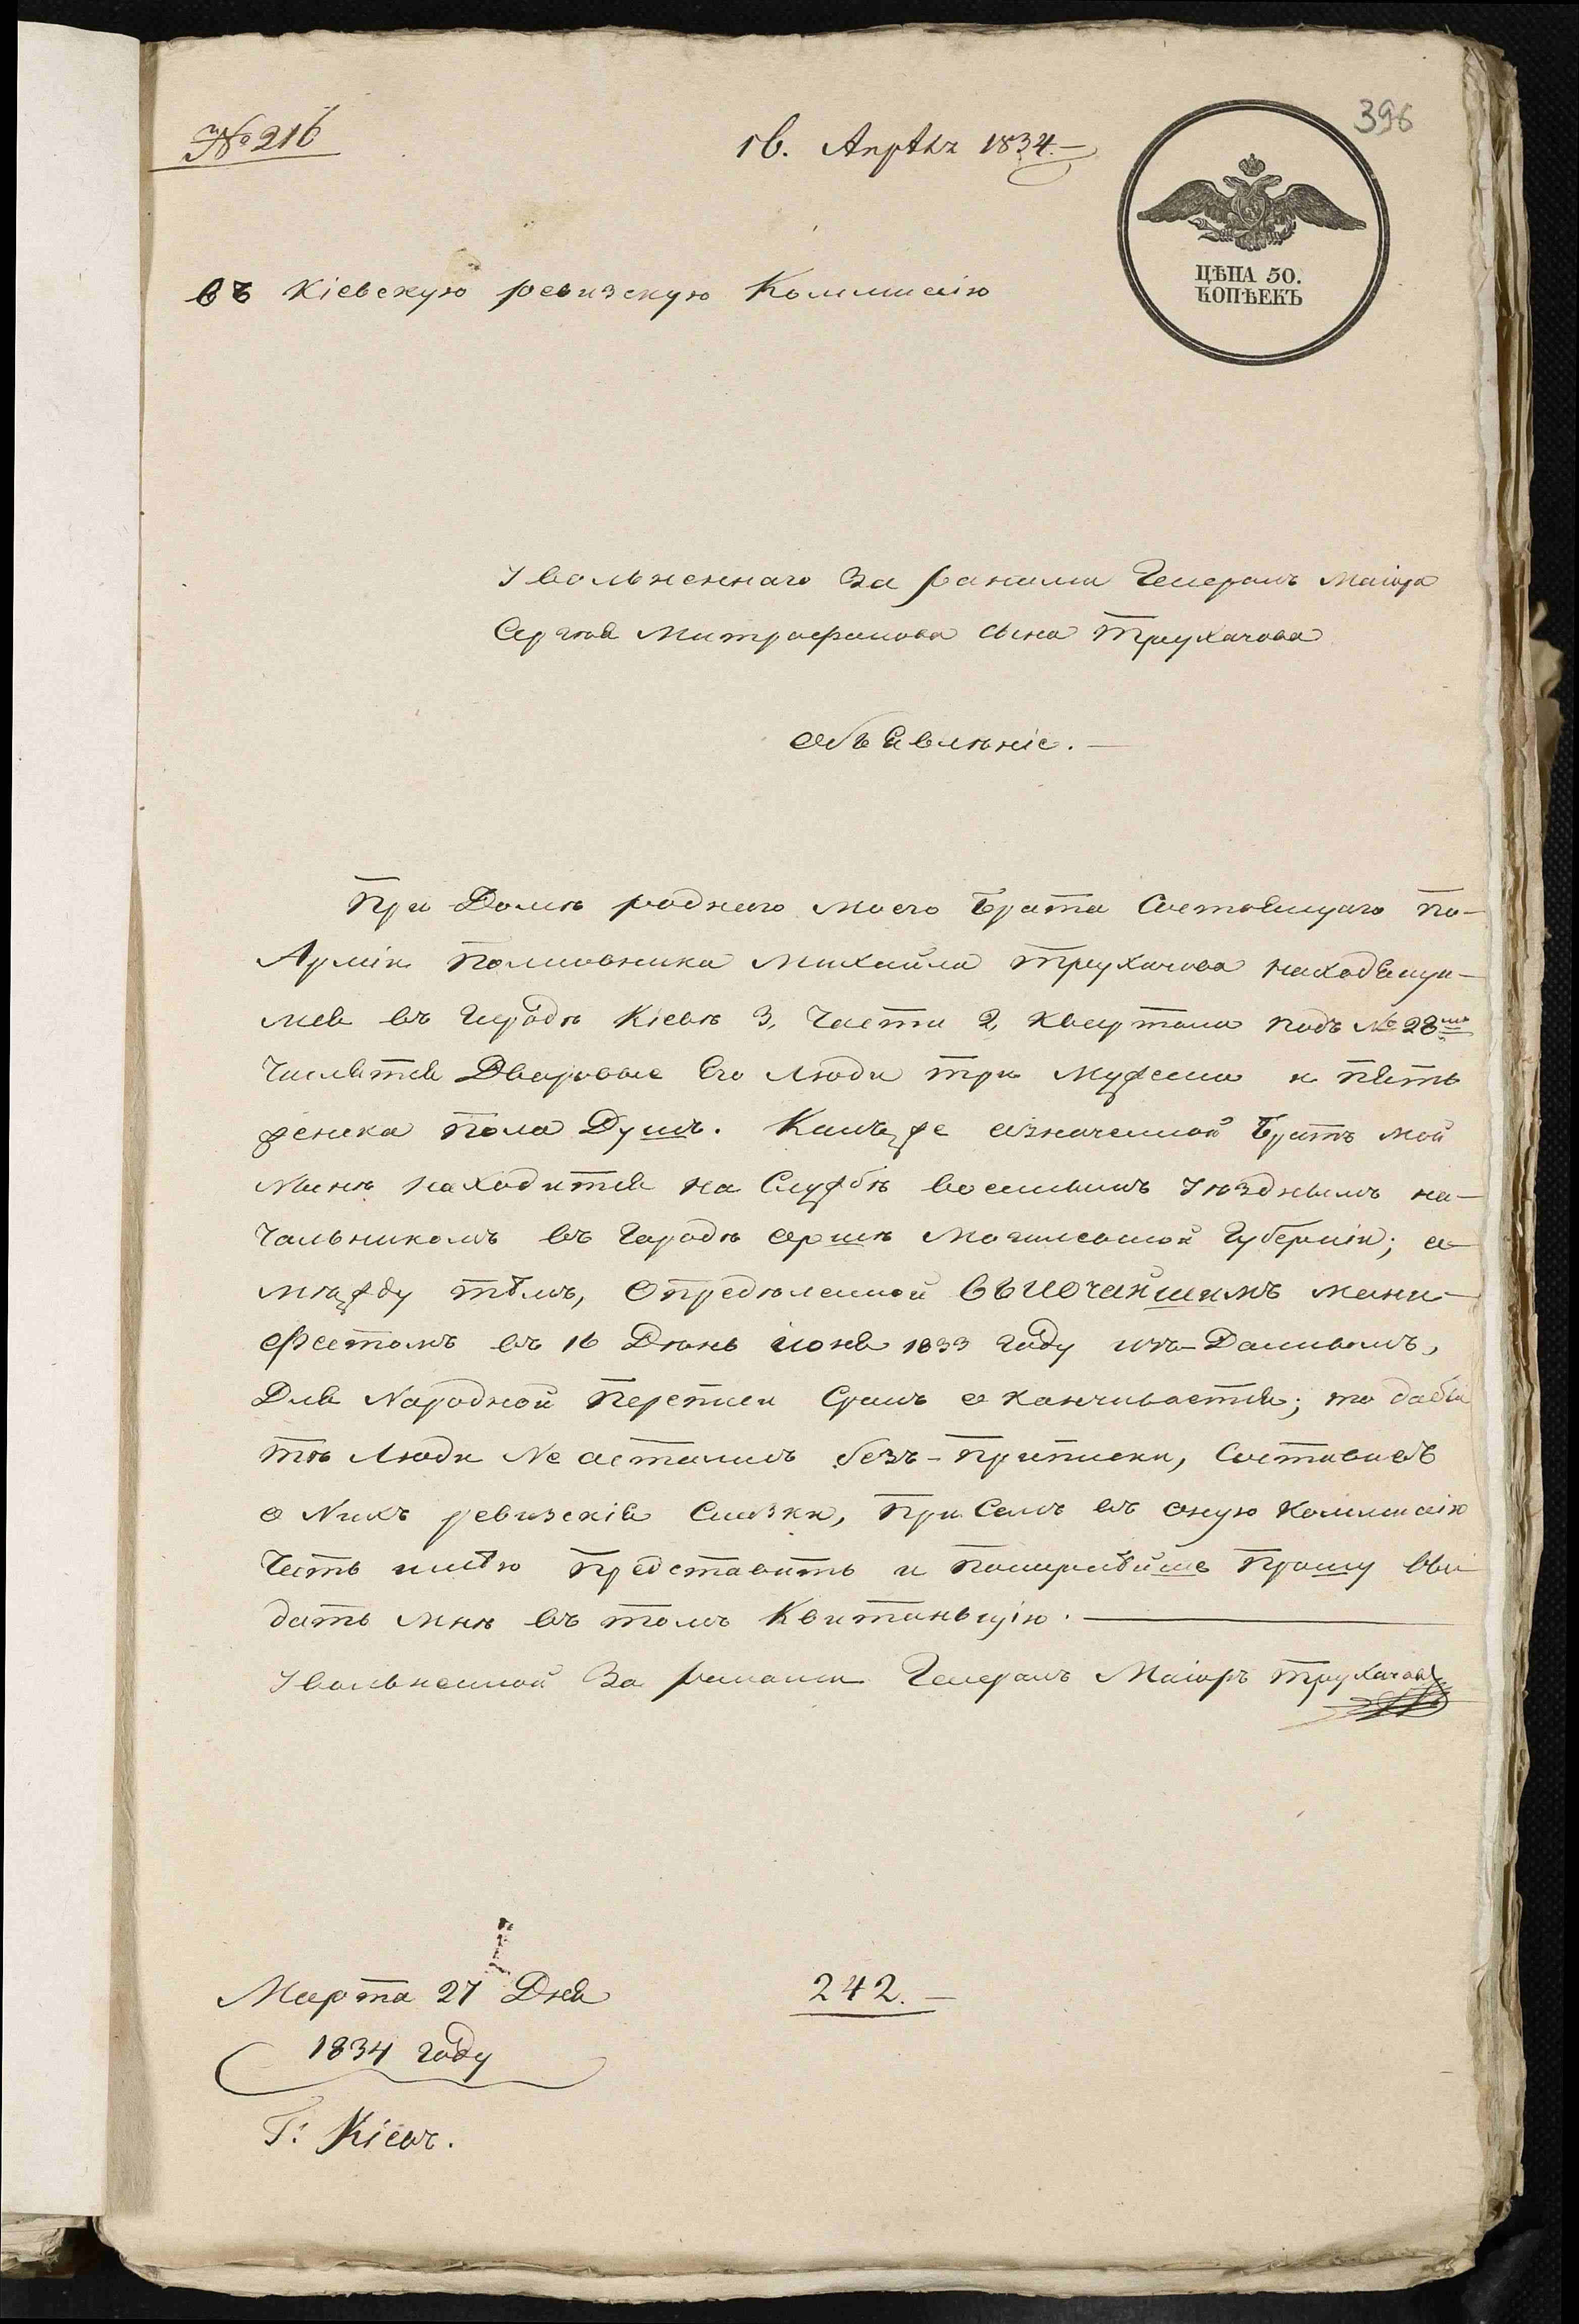 396
№ 216
16. Апрѣля 1834.
ЦѢНА 50.
КОПѢЕКЪ
Въ Кіевскую ревизскую Коммисію
Уволъненнаго За ранами Генералъ Маіора
Сергѣя Митрофанова сына Трухачова
объявлѣніе.
При Домѣ роднаго моего Брата Состоящаго по-
Арміи Полковника Михайла Трухачова находящи-
мся въ Городѣ Кіевѣ 3, Части 2, квартала подъ № 28мъ
Числятся Дворовые Его Люди три мужеска и пять
женска пола Душъ. Какъ же означенной Братъ мой
Нынѣ находится на Службѣ военнымъ Уѣзднымъ на-
чальникомъ въ Городѣ оршѣ Могилевской Губерніи; а
мѣжду тѣмъ, Опредѣленной высочайшимъ мани-
фестомъ въ 16 Дѣнь іюня 1833 году изъ-Даннымъ,
Для Народной Переписи Срокъ оканчивается; то дабы
тѣ Люди Не остались безъ-Приписки, Составивъ
о Нихъ ревизскія Сказки, При Семъ въ оную Коммисію
Честь имѣю Представить и Покорнѣйше Прошу вы
дать мнѣ въ томъ Квитаньцію.
Уволъненной За ранами Генералъ Маіоръ Трухачовъ
Марта 27 Дня
1834 году
242.
Г: Кіевъ.